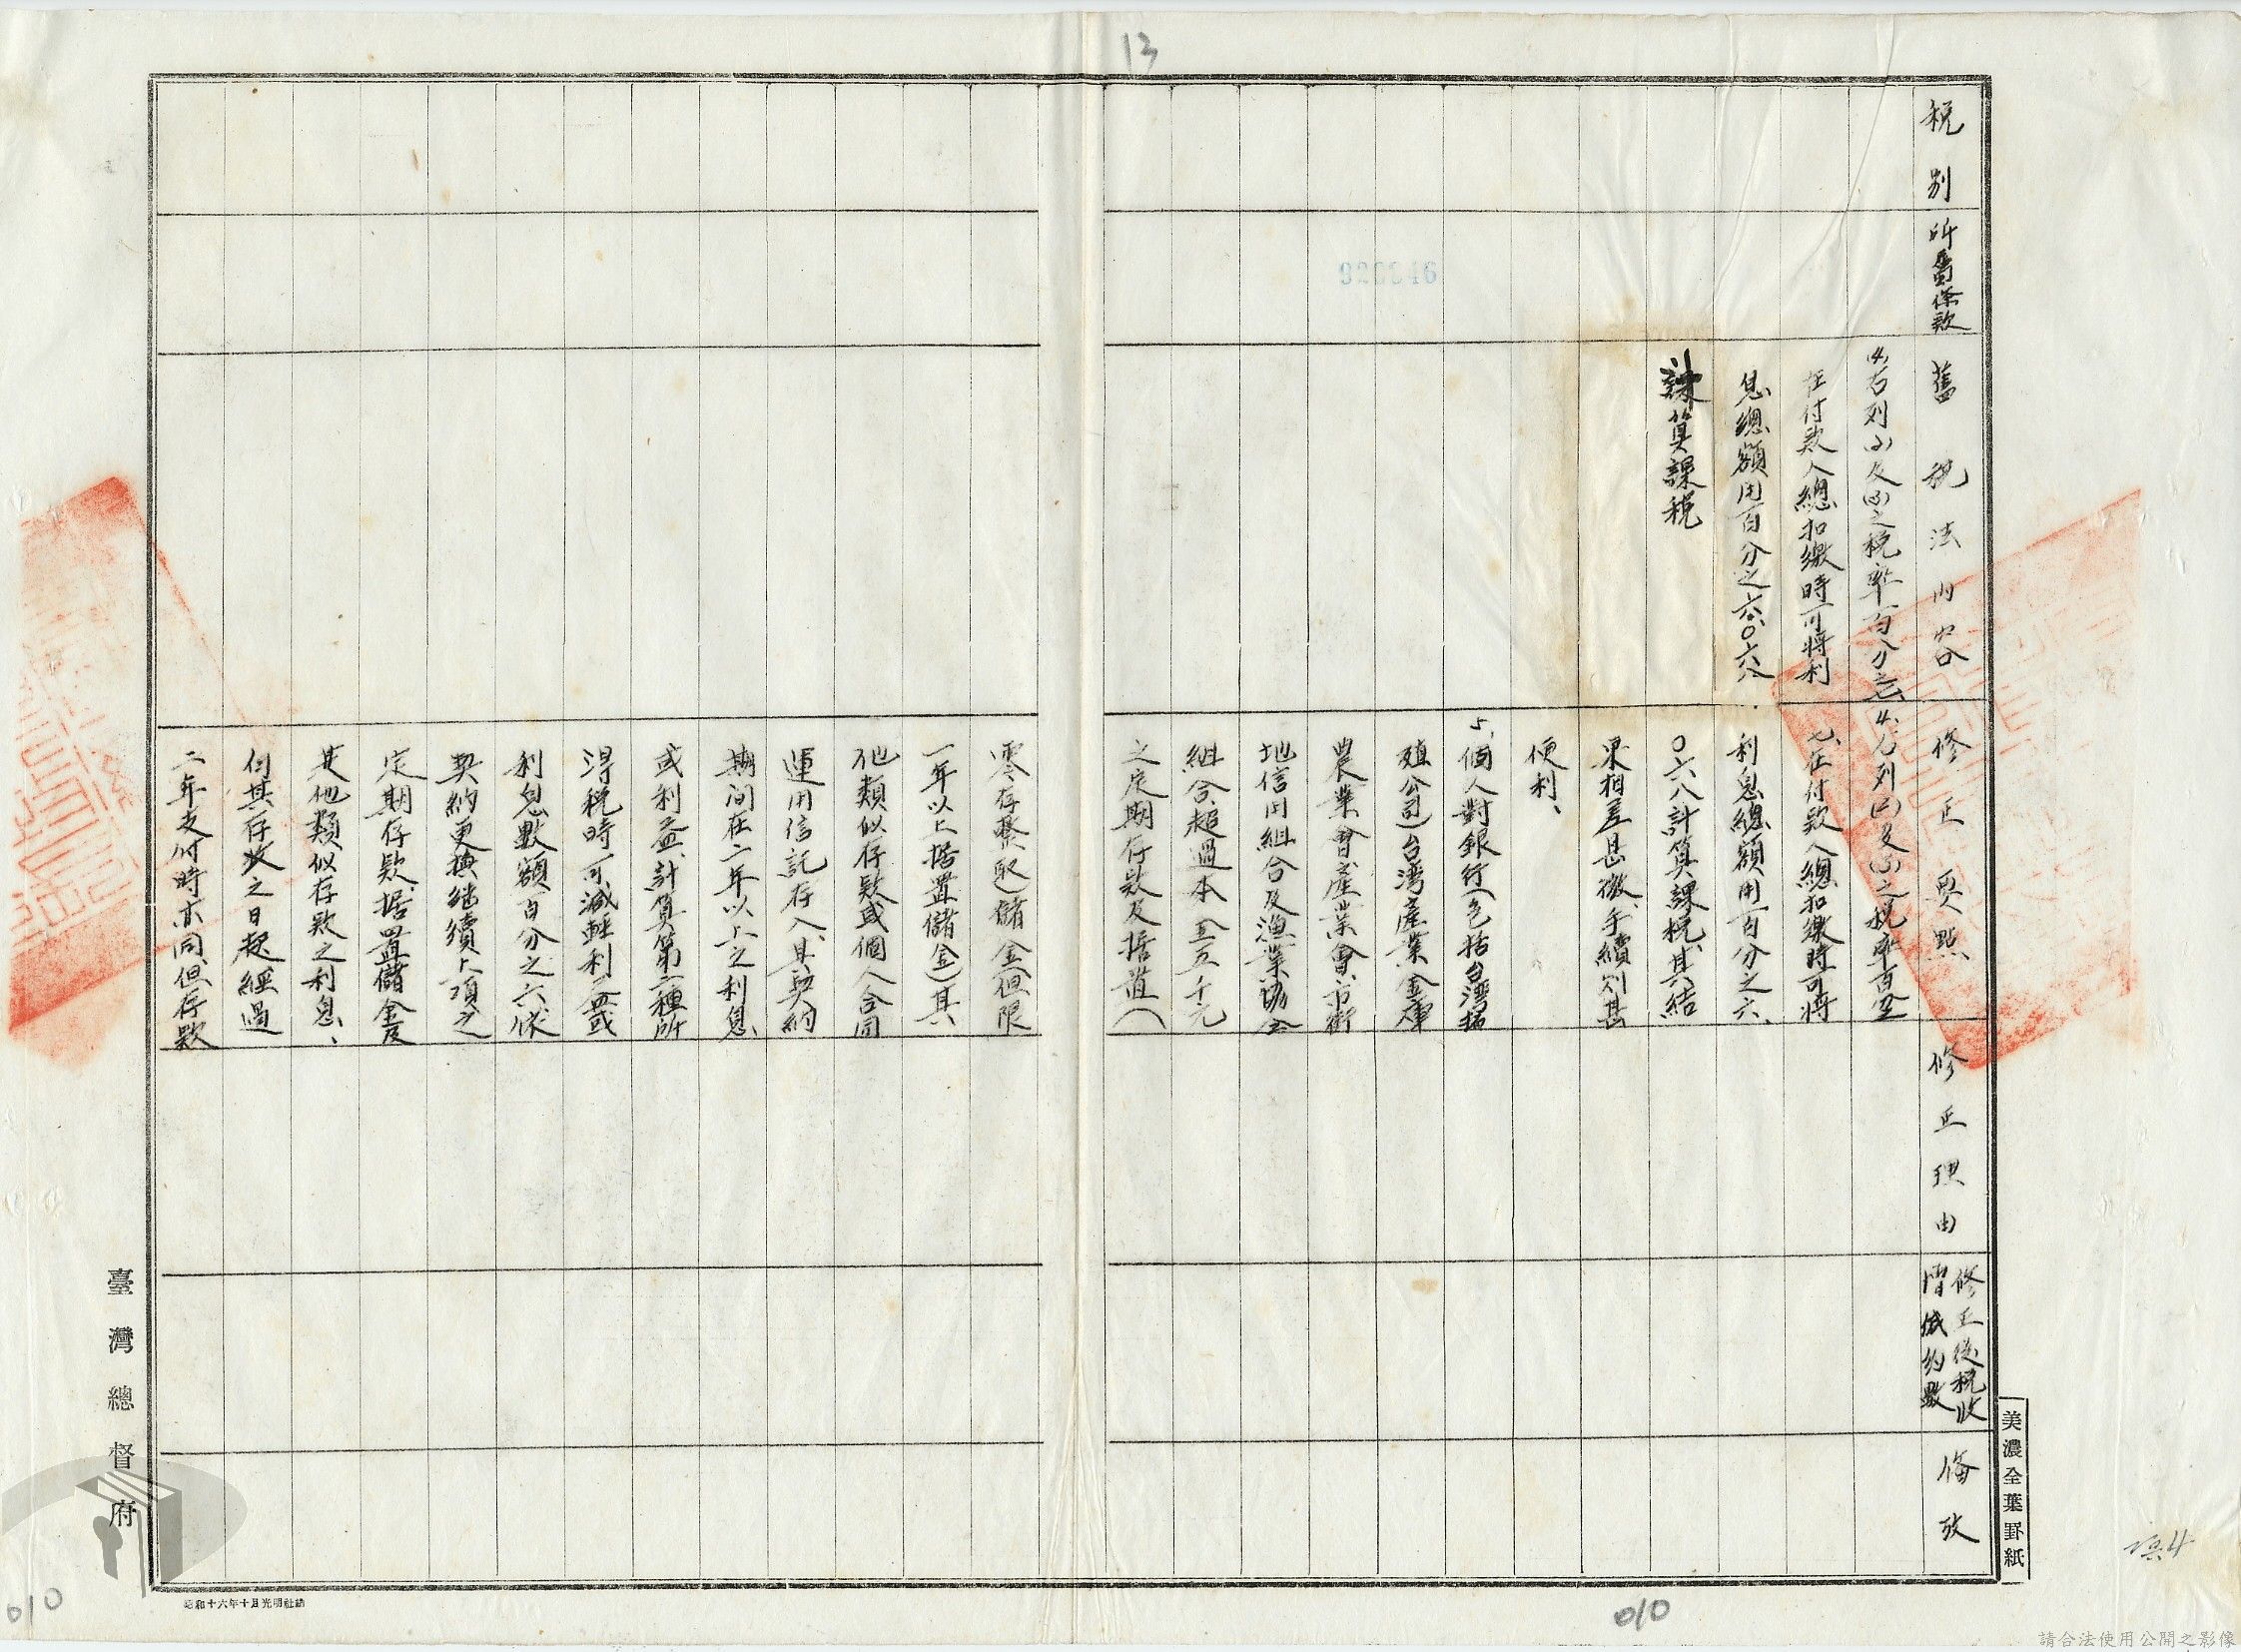 13
稅別
所屬條款
舊稅法內容
修正要點
修正理由
修正後稅收
增減約數
備攷
在付款人總扣繳時可將利
息總額用百分之六、〇六八
計算課稅
七、在付款人總扣繳時可將
利息總額用百分之六、
〇六八計算課稅、其結
果相差甚微、手續則甚
便利、
5、個人對銀行(包括台灣拓
殖公司)台灣產業金庫
農業會、產業會、市街
地信用組合及漁業協會
組合、超過本金五千元
之定期存款及据置(
零存整取)儲金(但限
一年以上据置儲金)其
他類似存款或個人合同
運用信託存入、其契約
期间在二年以上之利息
或利益、計算第二種所
得稅時可減輕利益或
利息數額百分之六、依
契約更換继續上項之
定期存款、据置儲金及
其他類似存款之利息、
何其存收之日起經過
二年支付時亦同、但存款
臺灣總督府
美濃全葉罫紙
昭和十六年十月光明社納
010
010
請合法使用公開之影像